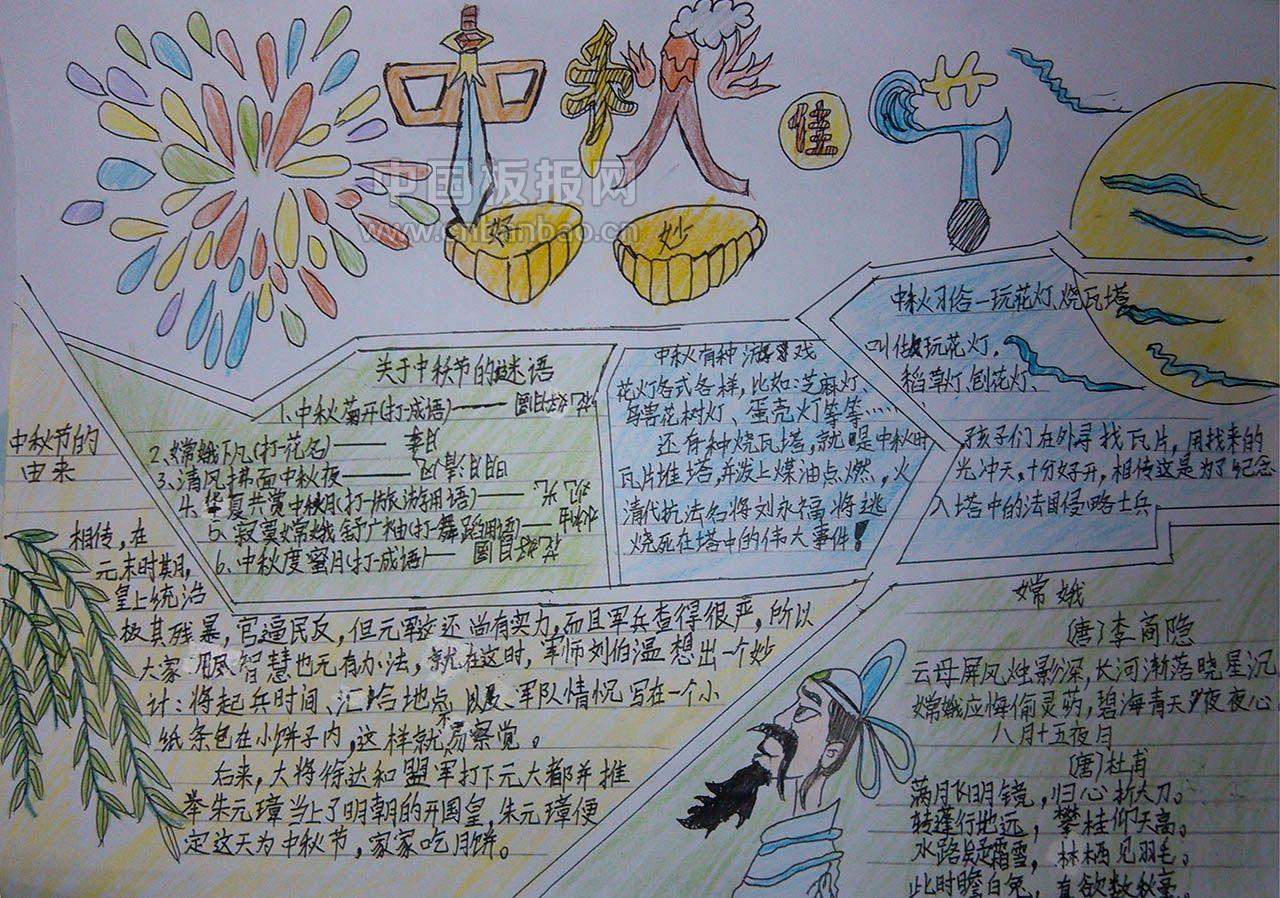 中秋佳节
好
妙
中国板报网
www.cnbanbao.cn
中秋习俗一玩花灯、烧瓦塔
叫做玩花灯,
稻草灯、刨花灯、
关于中秋节的谜语
1、中秋菊开(打成语)——花好月圆
2、嫦娥下凡(打一花名)——月季
3、清风拂面中秋夜——明月清风
4、华夏共赏中秋月(打一旅游用语)——观光
5、寂寞嫦娥舒广袖(打舞蹈用语)——
6、中秋度蜜月(打一成语)—花好月圆
中秋有种游戏
花灯各式各样,比如:芝麻灯、
鸟兽花树灯、蛋壳灯等等……
还有种烧瓦塔,就是中秋时
瓦片堆塔,并泼上煤油点燃,火
清代抗法名将刘永福将逃
烧死在塔中的伟大事件!
孩子们在外寻找瓦片,用找来的
光冲天,十分好开,相传这是为了纪念
入塔中的法国侵略士兵
中秋节的
由来
相传,在
元末时其月,
皇上统治
极其残暴,官逼民反,但元军这还尚有实力,而且军兵查得很严,所以
大家用尽智慧也无有办法,就在这时,军师刘伯温想出一个妙
计:将起兵时间、汇合地点以及、军队情况写在一个小
纸条包在小饼子内,这样就不易察觉。
后来,大将徐达和盟军打下元大都并推
举朱元璋当上了明朝的开国皇,朱元璋便
定这天为中秋节,家家吃月饼。
嫦娥
(唐)李商隐
云母屏风烛影深,长河渐落晓星沉
嫦娥应悔偷灵药,碧海青天夜夜心
八月十五夜月
(唐)杜甫
满月飞明镜,归心折大刀。
转蓬行地远,攀桂仰天高。
水路疑霜雪,林栖见羽毛。
此时瞻白兔,直欲数秋毫